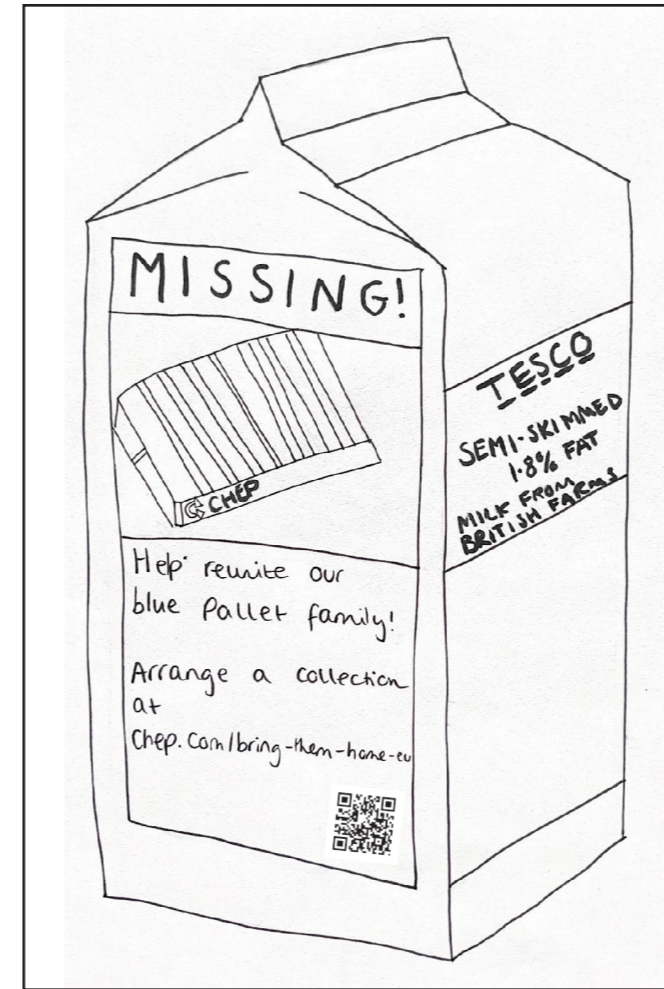 MISSING!
CHEP
Help reunite our
blue Pallet family!
Arrange a collection
at
Chep.Com/bring-them-home-eu
TESCO
SEMI-SKIMMED
1.8% FAT
MILK FROM
BRITISH FARMS